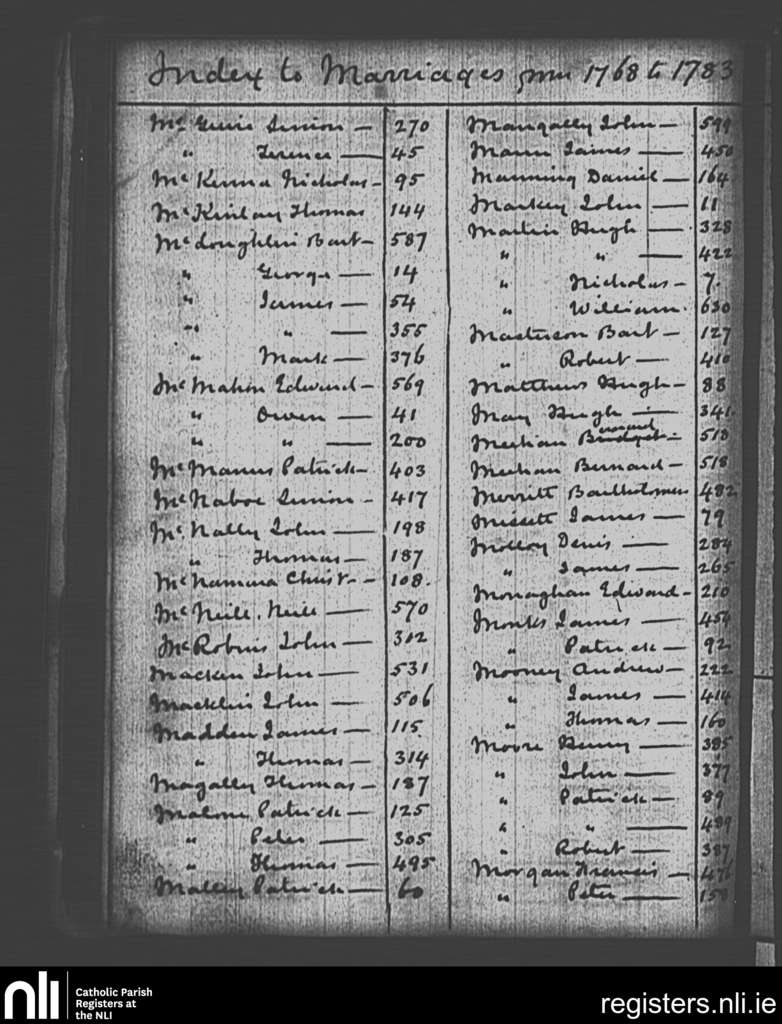 Index to Marriages from 1768 to 1783
Mc Guire Simon — 270
" Terence — 45
Mc Kenna Nicholas - 95
Mc Kinlay Thomas 144
Mc Loughlin Bart - 587
" George — 14
" James — 54
" " — 355
" Mark — 376
Mc Mahon Edward - 569
" Owen — 41
" " — 200
Mc Manus Patrick - 403
Mc Naboe Simon - 417
Mc Nally John — 198
" Thomas — 187
Mc Namara Christr - 108.
Mc Neill. Neill — 570
Mc Robins John — 312
Macken John — 531
Macklin John — 506
Madden James — 115.
" Thomas — 314
Magally Thomas - 187
Malone Patrick — 125
" Peter — 305
" Thomas — 495
Malley Patrick — 60
Mangally John — 599
Mann James — 450
Manning Daniel — 164
Markey John — 11
Martin Hugh — 328
" " — 422
" Nicholas - 7.
" William. 630
Masterson Bart — 127
" Robert — 410
Matthews Hugh - 88
May Hugh — 341
Meehan Bernard - 518
Meehan Bernard - 518
Merritt Bartholomew 482
Missett James — 79
Molloy Denis — 284
" James — 265
Monaghan Edward - 210
Monks James — 454
" Patrick — 92
Mooney Andrew — 222
" James — 414
" Thomas — 160
Moore Henry — 385
" John — 377
" Patrick — 89
" " — 489
" Robert — 387
Morgan Francis — 476
" Peter — 158
nli Catholic Parish
Registers at
the NLI
registers.nli.ie